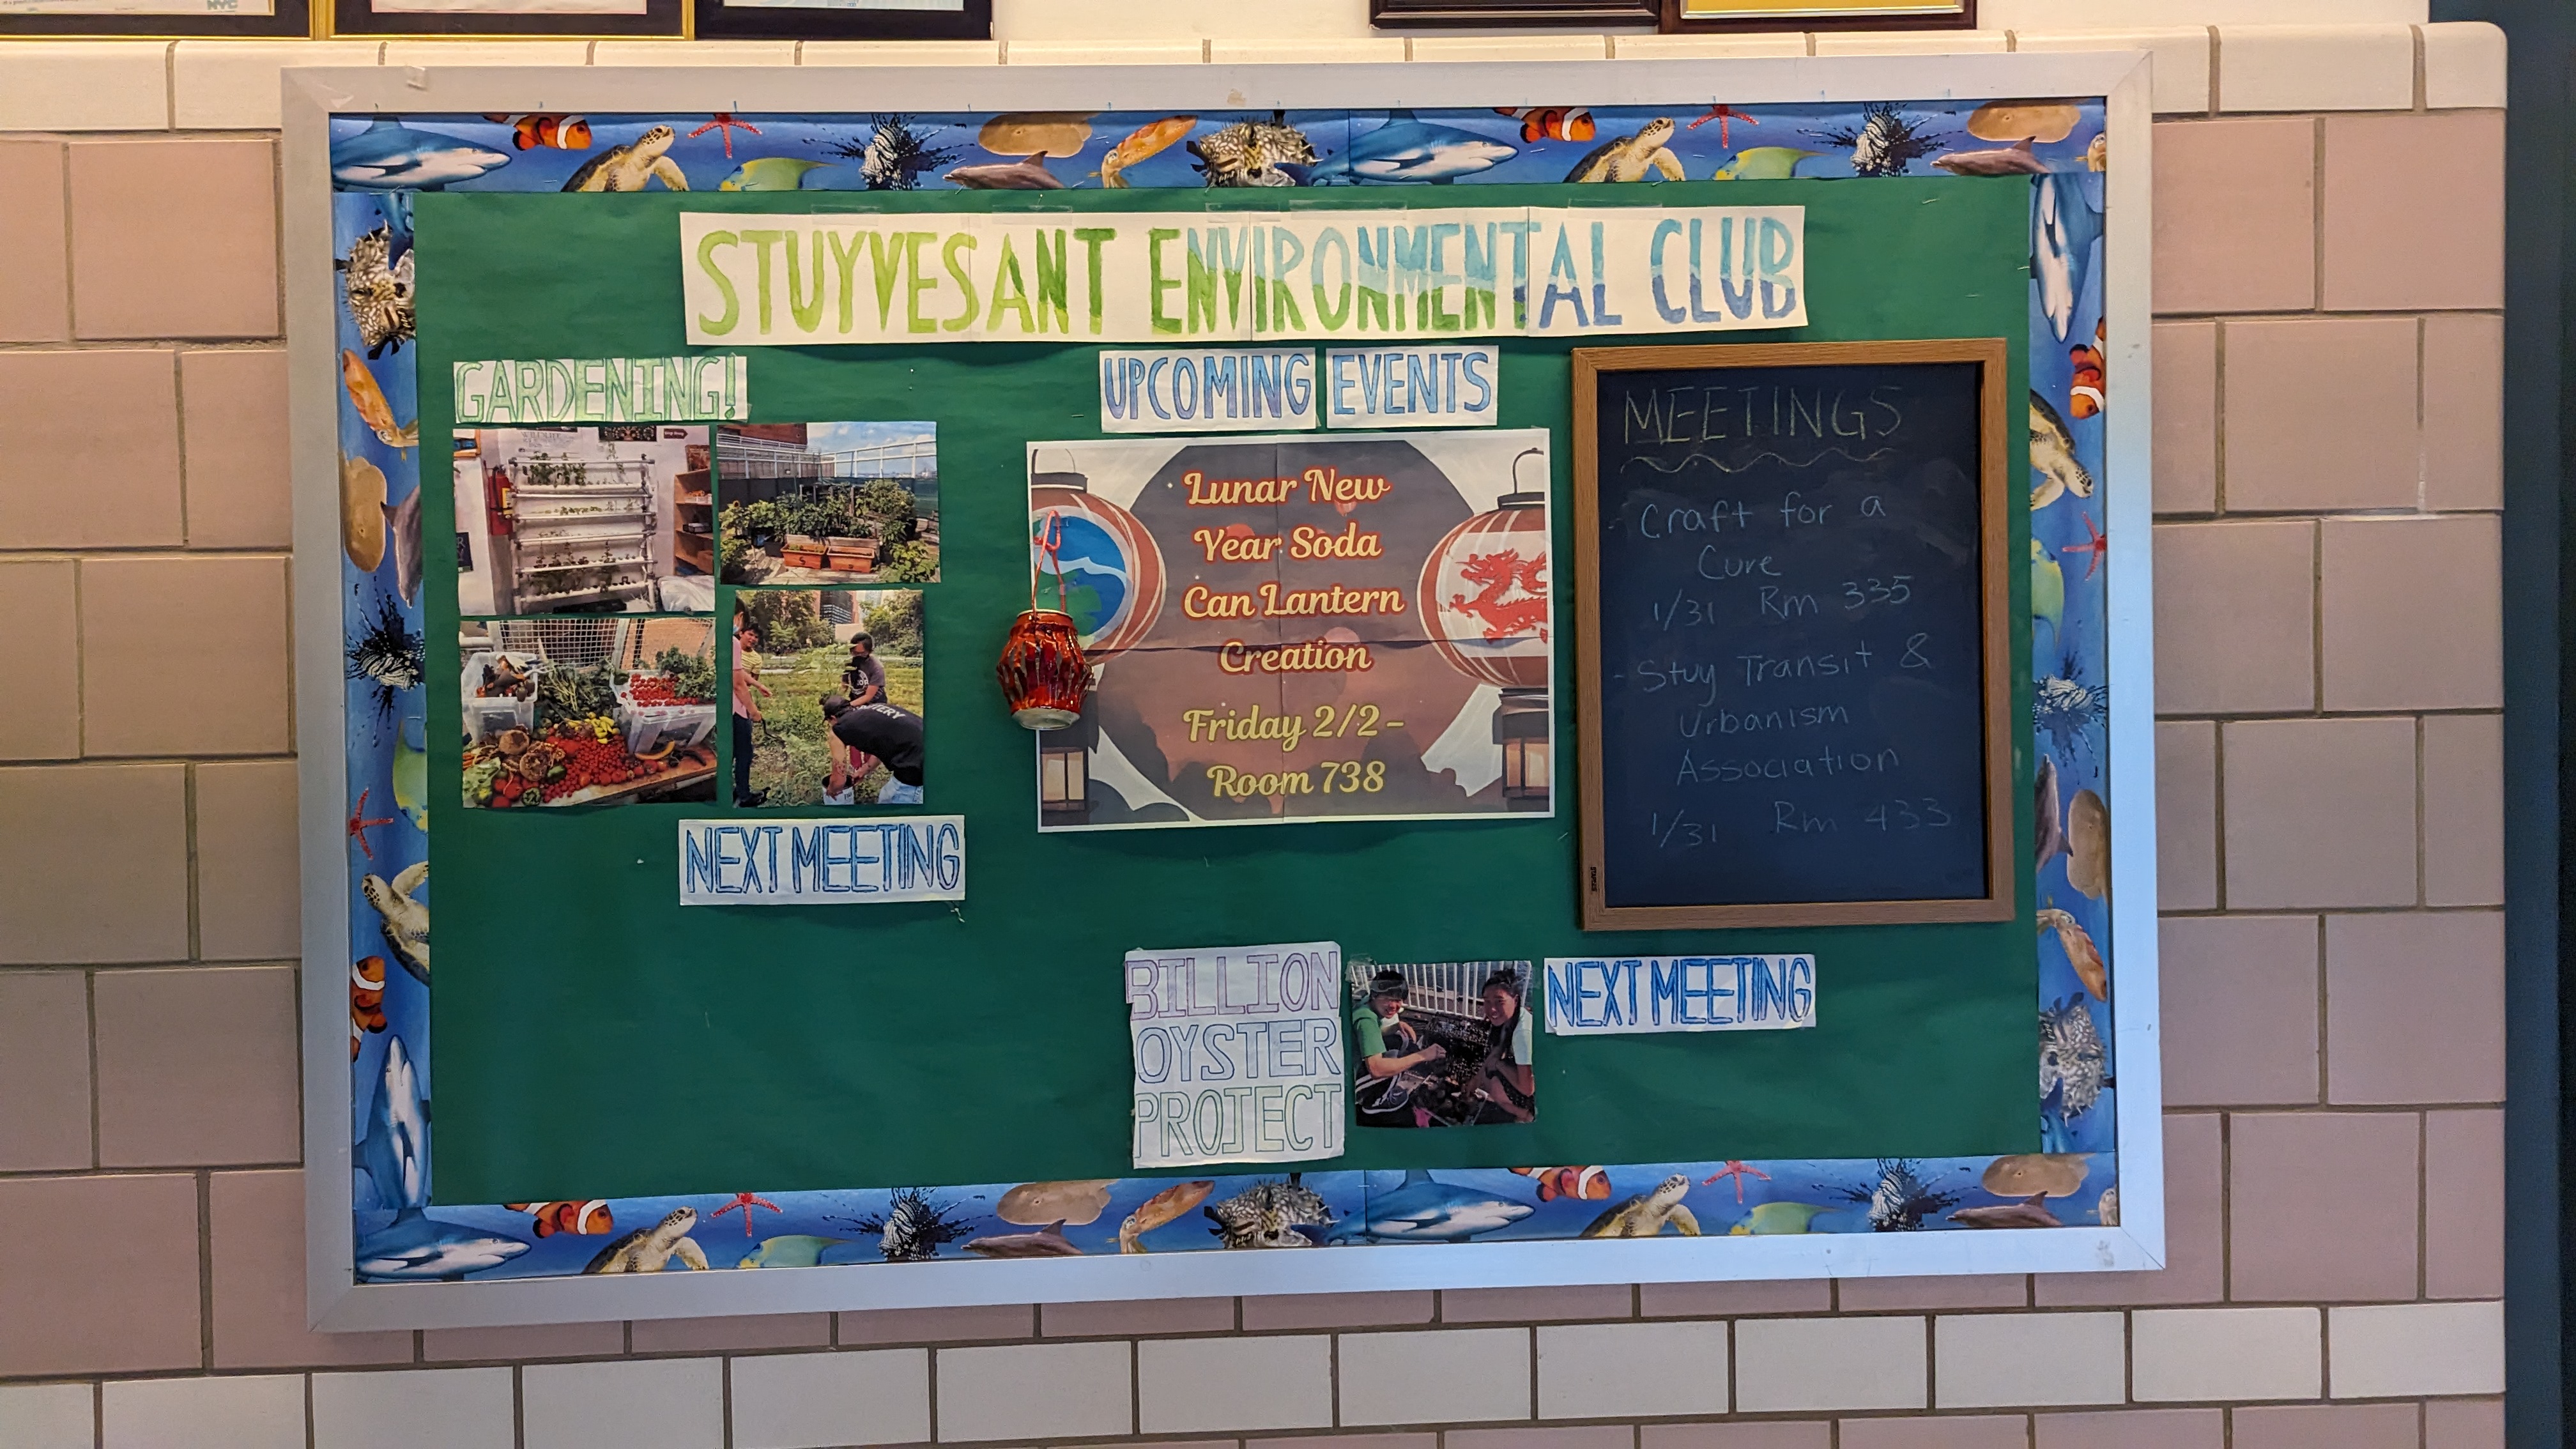 NYC
STUYVESANT ENVIRONMENTAL CLUB
GARDENING!
NEXT MEETING
UPCOMING EVENTS
Lunar New
Year Soda
Can Lantern
Creation
Friday 2/2-
Room 738
MEETINGS
- Craft for a
Cure
1/31 Rm 335
- Stuy Transit &
Urbanism
Association
1/31 Rm 433
BILLION
OYSTER
PROJECT
NEXT MEETING